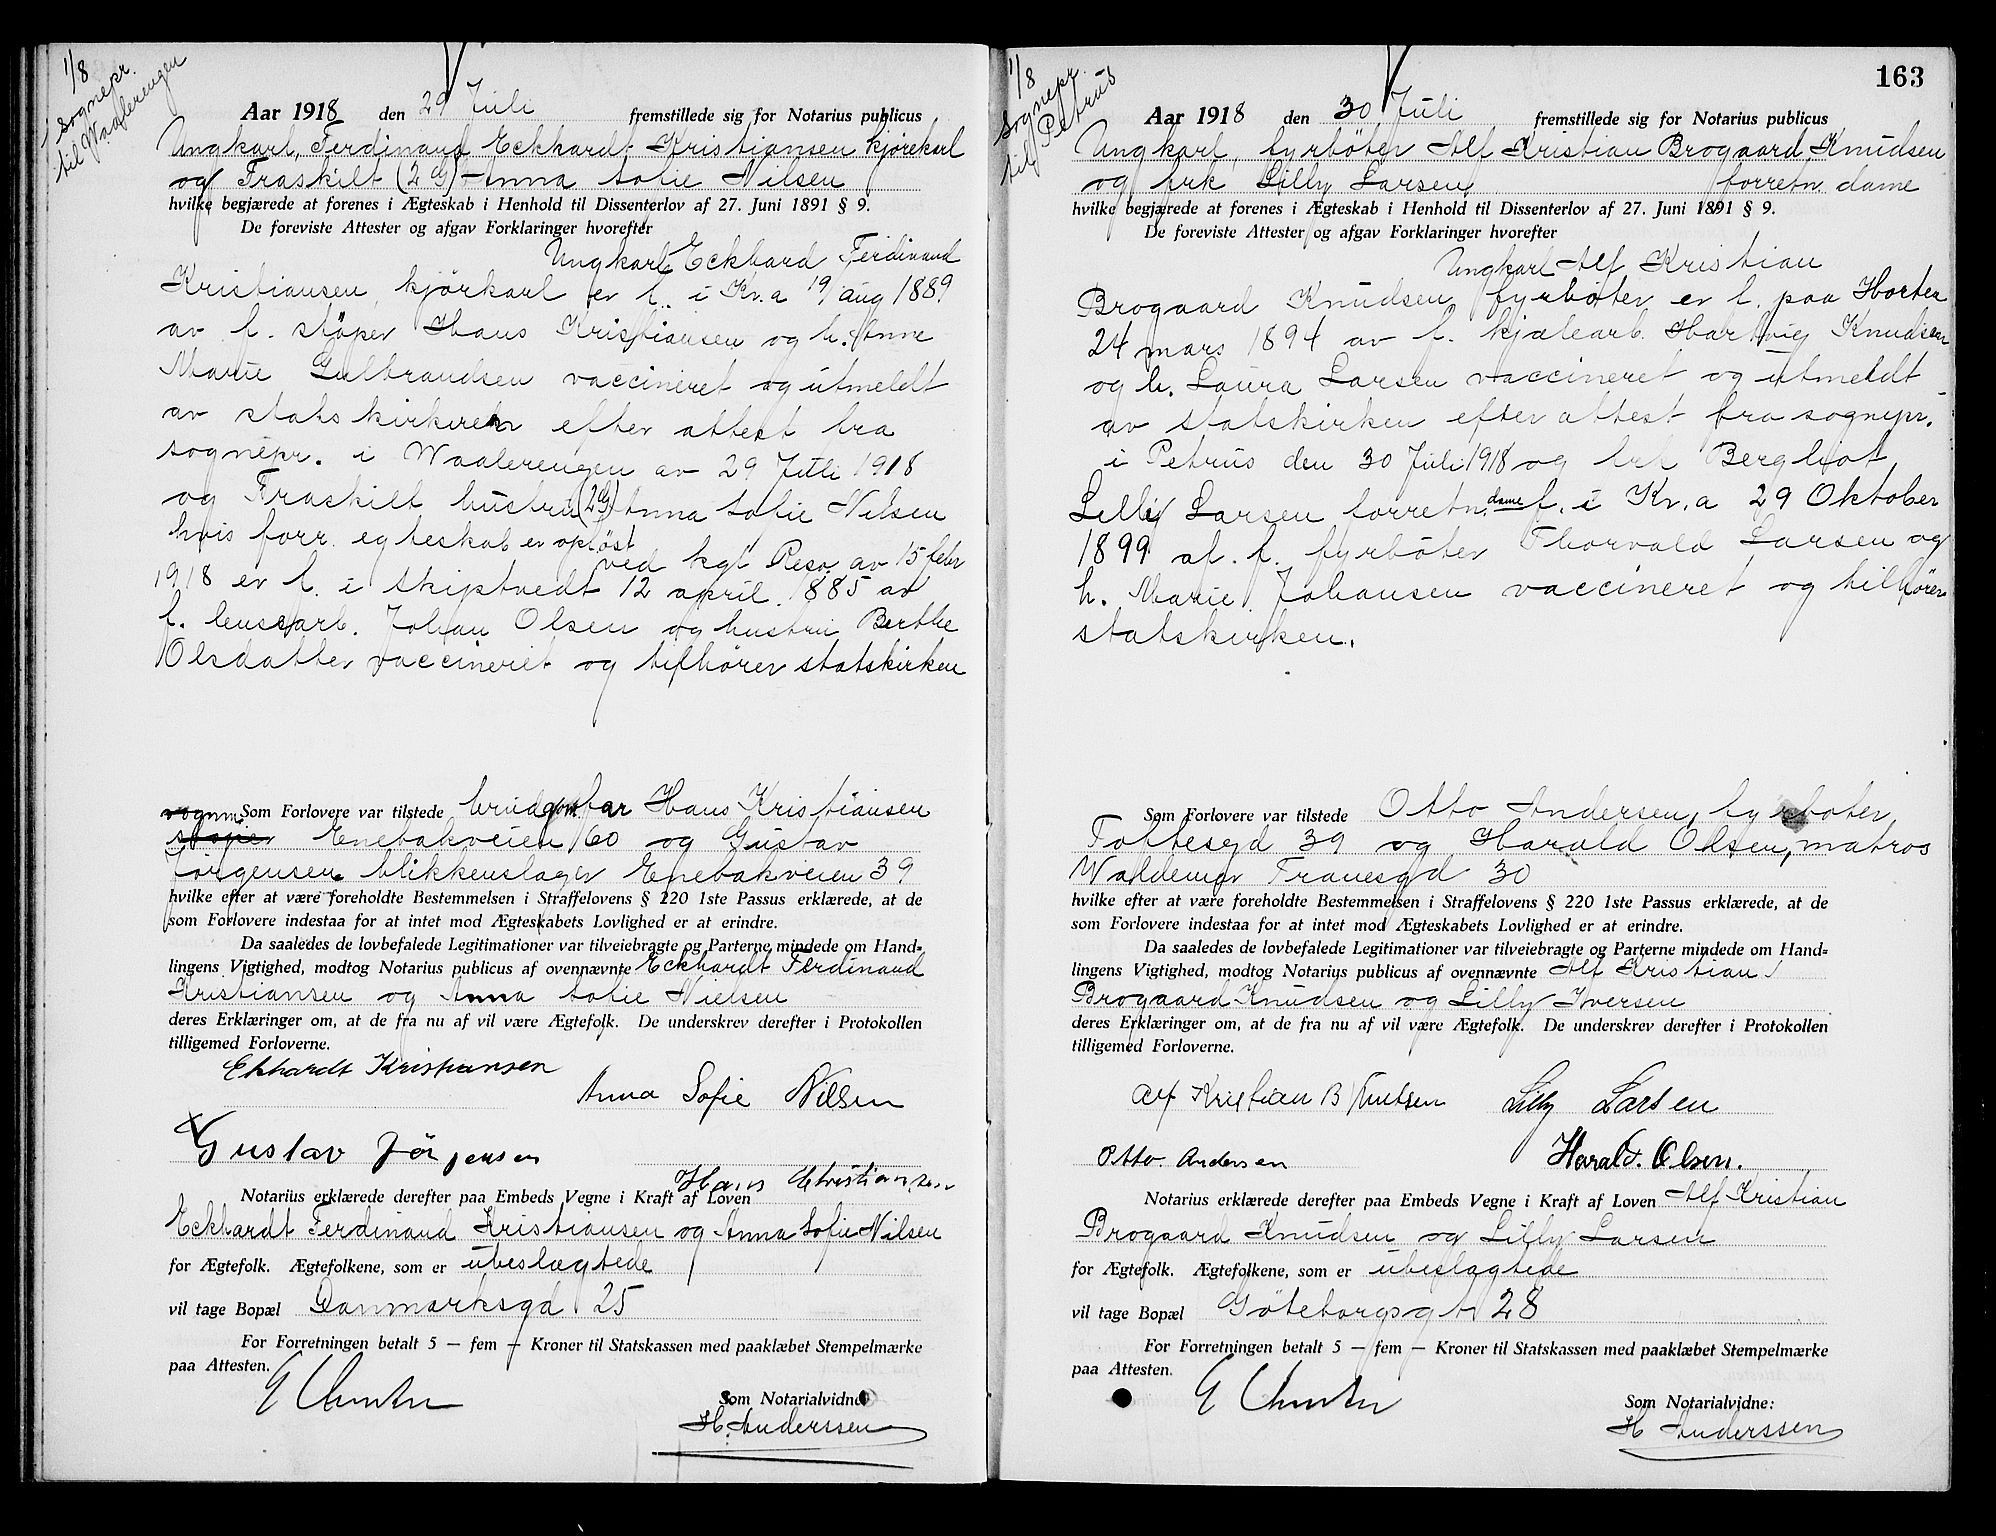 1/8
sognepr.
til Waalerengen
Aar 1918 den 29 Juli fremstillede sig for Notarius publicus
Ungkarl, Ferdinand Eckhardt Kristiansen kjørekarl
og Fraskilt (2 G) Anna Sofie Nilsen
hvilke begjærede at forenes i Ægteskab i Henhold til Dissenterlov af 27. Juni 1891 § 9.
De foreviste Attester og afgav Forklaringer hvorefter
Ungkarl Eckhard Ferdinand
Kristiansen, kjørkarl er f. i Kr.a 19 aug 1889
av f. støper Hans Kristiansen og h. Anne
Marie Gulbrandsen vaccineret og utmeldt
av statskirken efter attest fra
sognepr. i Waalerengen av 29 Juli 1918
og Fraskilt hustru (2G) Anna Sofie Nilsen
hvis forr. egteskab er opløst
ved kgl Reso. av 15 febr
1918 er f. i Skiptvedt 12 april 1885 av
f. lensearb. Johan Olsen og hustru Berthe
Olsdatter vaccineret og tilhører statskirken
vognm. Som Forlovere var tilstede brudgom far Hans Kristiansen
Enebakveien 60 og Gustav
Jørgensen blikkenslager Enebakveien 39
hvilke efter at være foreholdte Bestemmelsen i Straffelovens § 220 1ste Passus erklærede, at de
som Forlovere indestaa for at intet mod Ægteskabets Lovlighed er at erindre.
Da saaledes de lovbefalede Legitimationer var tilveiebragte og Parterne mindede om Hand-
lingens Vigtighed, modtog Notarius publicus af ovennævnte Eckhardt Ferdinand
Kristiansen og Anna Sofie Nielsen
deres Erklæringer om, at de fra nu af vil være Ægtefolk. De underskrev derefter i Protokollen
tilligemed Forloverne.
Ekhardt Kristiansen
Anna Sofie Nilsen
Gustav Jørgensen
Hans Christiansen
Notarius erklærede derefter paa Embeds Vegne i Kraft af Loven
Eckhardt Ferdinand Kristiansen og Anna Sofie Nilsen
for Ægtefolk. Ægtefolkene, som er ubeslægtede
vil tage Bopæl Danmarksgd 25
For Forretningen betalt 5 — fem — Kroner til Statskassen med paaklæbet Stempelmærke
paa Attesten.
Som Notarialvidne
H. Anderssen
163
1/8
sognepr.
til Petrus
Aar 1918 den 30 Juli fremstillede sig for Notarius publicus
Ungkarl, fyrbøter Alf Kristian Brogaard Knudsen
og frk Lilly Larsen, forretn. dame
hvilke begjærede at forenes i Ægteskab i Henhold til Dissenterlov af 27. Juni 1891 § 9.
De foreviste Attester og afgav Forklaringer hvorefter
Ungkarl Alf Kristian
Brogaard Knudsen, fyrbøter er f. paa Horten
24 mars 1894 av f. kjelearb. Hartvig Knudsen
og h. Laura Larsen vaccineret og utmeldt
av statskirken efter attest fra sognepr.
i Petrus den 30 Juli 1918 og frk Bergliot
Lilly Larsen forretn. dame f. i Kr.a 29 Oktober
1899 af. f. fyrbøter Thorvald Larsen og
h. Marie Johansen vaccineret og tilhører
statskirken.
Som Forlovere var tilstede Otto Andersen, fyrbøter
Toftesgd 39 og Harald Olsen, matros
Waldemar Tranesgd 30
hvilke efter at være foreholdte Bestemmelsen i Straffelovens § 220 1ste Passus erklærede, at de
som Forlovere indestaa for at intet mod Ægteskabets Lovlighed er at erindre.
Da saaledes de lovbefalede Legitimationer var tilveiebragte og Parterne mindede om Hand-
lingens Vigtighed, modtog Notarius publicus af ovennævnte Alf Kristian
Brogaard Knudsen og Lilly Iversen
deres Erklæringer om, at de fra nu af vil være Ægtefolk. De underskrev derefter i Protokollen
tilligemed Forloverne.
Alf Kristian B Knutsen Lilly Larsen
Otto Andersen Harald Olsen.
Notarius erklærede derefter paa Embeds Vegne i Kraft af Loven Alf Kristian
Brogaard Knudsen og Lilly Larsen
for Ægtefolk. Ægtefolkene, som er ubeslagtede
vil tage Bopæl Göteborgsgt 28
For Forretningen betalt 5 — fem — Kroner til Statskassen med paaklæbet Stempelmærke
paa Attesten.
Som Notarialvidne:
H Anderssen